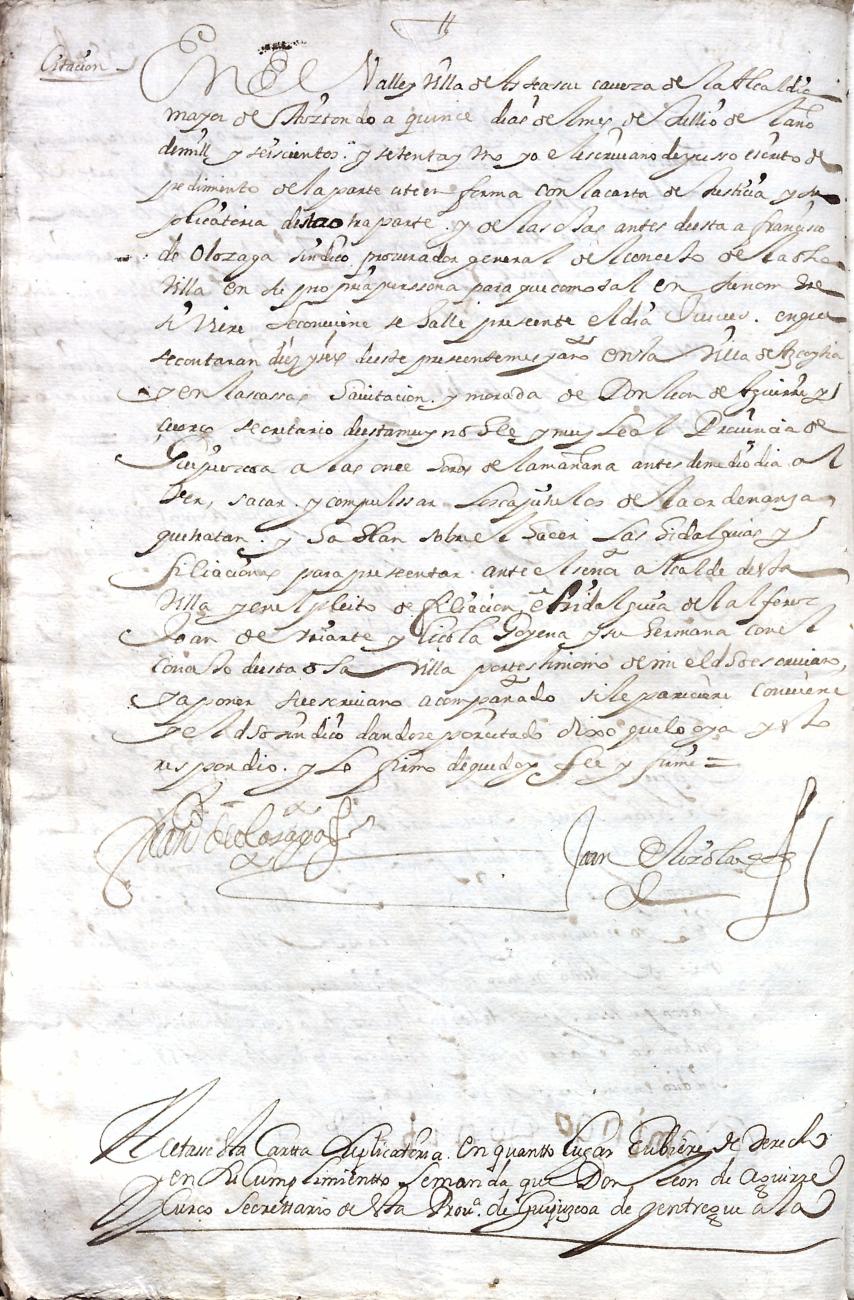 Citacion
En El Valle y Villa de Asteasu caveza de la Alcaldia
mayor de Aiztondo a quince dias del mes de Jullio del año
de mill y seiscientos y setenta y uno yo el escrivano de yusso escrito de
pedimiento de la parte cite en forma con la carta de Justicia y su
plicatoria desta otra parte y de las otras antes desta a francisco
de Olozaga sindico procurador general del concejo de la dha
Villa en su propria perssona para que como tal en su nombre
si viere le conviene se halle presente el dia Jueves en que
se contaran diez y seis deste presente mes y año en la Villa de Azcoytia
y en las cassas havitacion y morada de Don Leon de Aguirre y
Çurço secretario desta muy noble y muy Leal Provincia de
Guipuzcoa a las once horas de la mañana antes de medio dia al
Ver, sacar y compulssar los capitulos de la ordenanza
que tratan y hablan sobre el hacer las hidalguias y
filiaciones para presentar ante el señor alcalde desta
Villa y en el pleito de filiacion e hidalguia del alferez
Joan de Yriarte y Nicola Goyena y su hermana con el
concejo desta dha Villa por testimonio de mi el dho escrivano,
y a poner su escrivano acompañado si le pareciere conviene
y el dho sindico dandose por citado dixo que lo oya y esto
respondio y lo firmo de que doy fee y firme =
Fran.co de Olozaga Juan de
Acetase esta Cartta Suplicatoria en quantto lugar hubiere de derecho
y en su Cumplimientto se manda que Don Leon de Aguirre
Çurço Secrettario de esta Prov.a de Guipuzcoa de y entregue a la